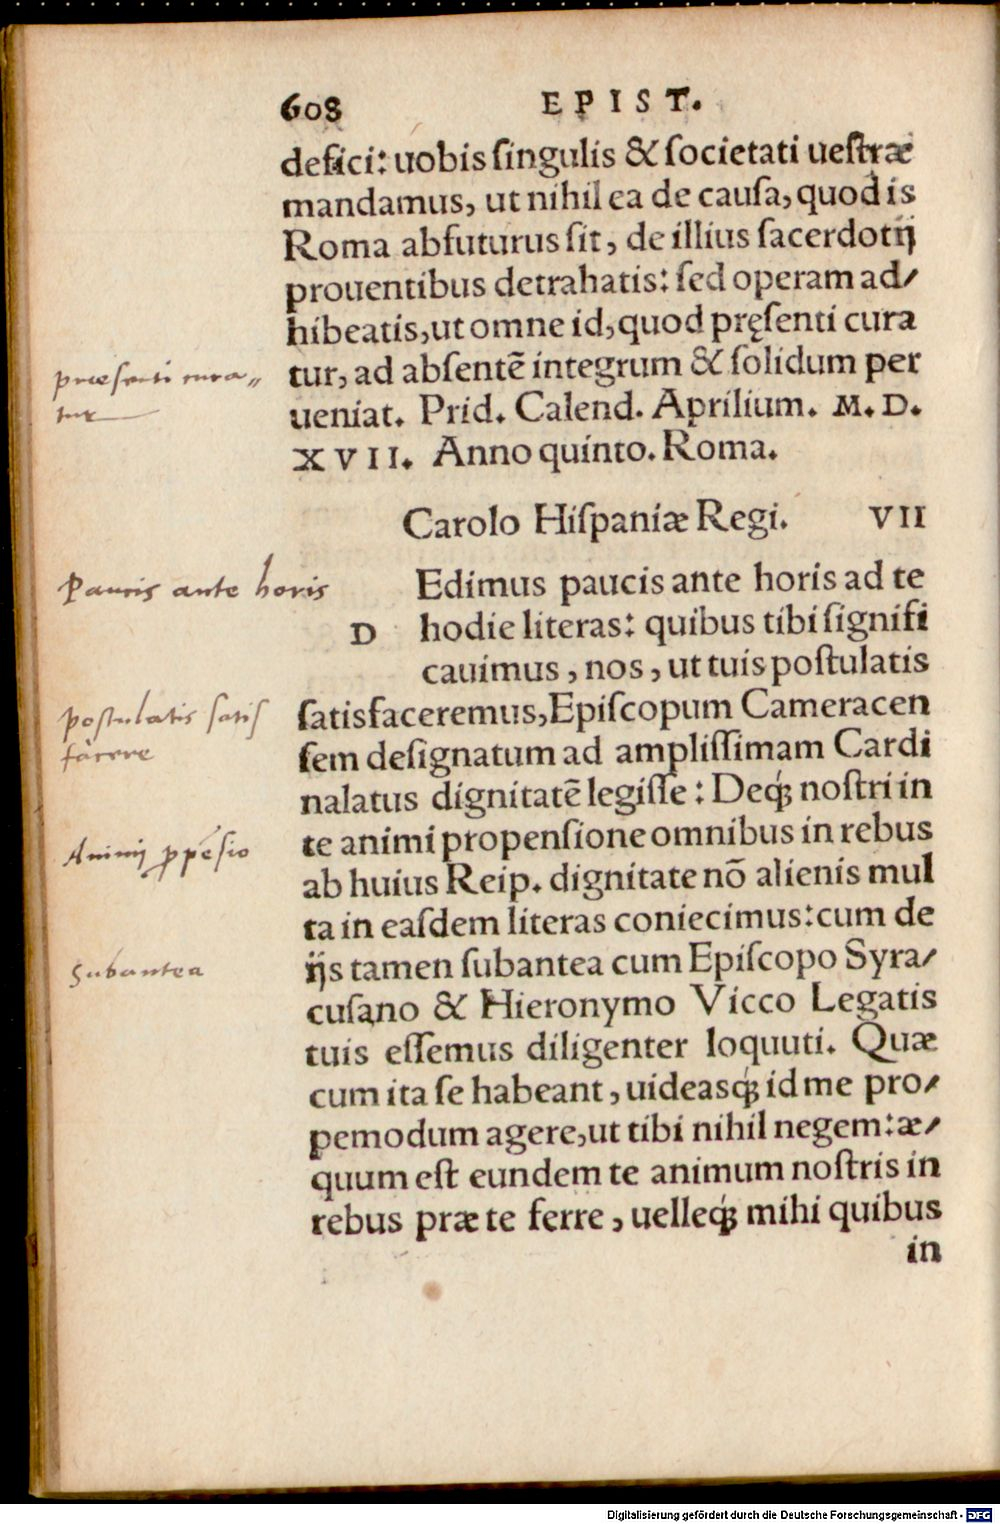 608 EPIST.
defici: uobis singulis & societati uestræ
mandamus, ut nihil ea de causa, quod is
Roma abfuturus sit, de illius sacerdotij
prouentibus detrahatis: sed operam ad/
hibeatis, ut omne id, quod pręsenti cura
tur, ad absentē integrum & solidum per
ueniat. Prid. Calend. Aprilium. M. D.
XVII. Anno quinto. Roma.
præsenti cura„
tur
Carolo Hispaniæ Regi. VII
Edimus paucis ante horis ad te
D hodie literas: quibus tibi signifi
cauimus, nos, ut tuis postulatis
satisfaceremus, Episcopum Cameracen
sem designatum ad amplissimam Cardi
nalatus dignitatē legisse: Deq́; nostri in
te animi propensione omnibus in rebus
ab huius Reip. dignitate nō alienis mul
ta in easdem literas coniecimus: cum de
ijs tamen subantea cum Episcopo Syra/
cusano & Hieronymo Vicco Legatis
tuis essemus diligenter loquuti. Quæ
cum ita se habeant, uideasq́; id me pro/
pemodum agere, ut tibi nihil negem: æ/
quum est eundem te animum nostris in
rebus præ te ferre, uelleq́; mihi quibus
in
Paucis ante horis
postulatis satis
facere
Animi ꝓpēsio
Subantea
Digitalisierung gefördert durch die Deutsche Forschungsgemeinschaft - DFG